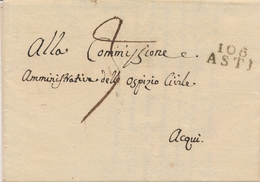 Alla Commissione
106
ASTI
Amministrativa dello Ospizio Civile
Acqui.